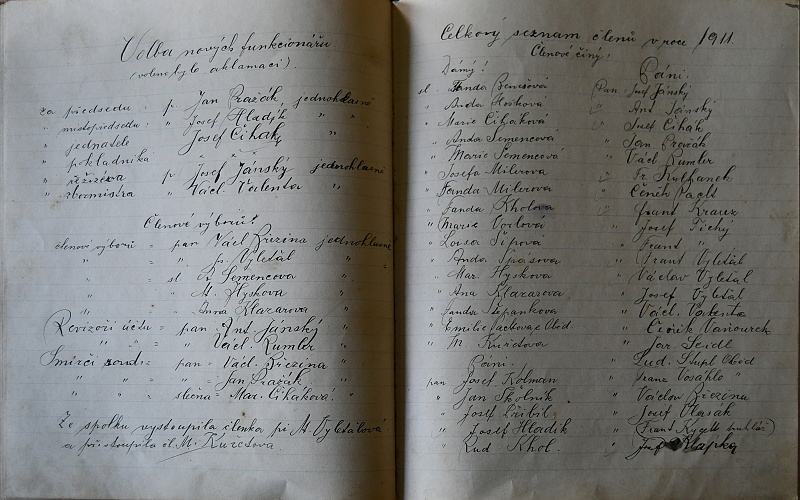 Volba nových funkcionářů
(voleno bylo aklamací).
za předsedu p. Jan Pražák, jednohlasně
" místopředsedu " Josef Hladík " "
" jednatele Josef Čihák " "
" pokladníka " " "
" režiséra p. Josef Jánský jednohlasně
" sbormistra " Václ Valenta "
Členové výboru:
členové výboru = pan Václ Březina jednohlasně
" " p. Vyletál "
" sl. Semencova "
" " M. Hyskova "
" " Anna Klazarova "
Revizoři účtů = pan Ant. Janský "
" " " Václ. Rumler "
Smírčí = pan Václ. Březina "
" " = " Jan Pražák "
" " = slečna = Mar. Čiháková "
Ze spolku vystoupila členka pí M. Vyletálová
a přistoupila sl. M. Kurčtova
Celkový seznam členů v roce 1911.
Členové činý:
Dámy:
sl Fanda Benešová
" Anda Hoškova
" Marie Čiháková
" Anda Semencová
" Marie Semencová
" Josefa Milerova
" Fanda Milerova
" Fanda Kholova
" Marie Vorlová
" Loisa Šípová
" Anda Spásova
" Mar. Hyskova
" Ana Klazarova
" Fanda Štěpankova
" Emilie
" M. Kurčtova
Páni.
pan Josef Kolman
" Jan Školník
" Josef
" Josef Hladík
" Rud Khol.
Páni.
Pan Josef Jánský
" Ant. Jánský
" Josef Čihák
" Jan Pražák
" Václ Rumler
" Fr. Kulhanek
" Čeněk
" Frant Krauz
" Josef Tichý
" Frant "
" Frant Vyletál
" Václav Vyletál
" Josef Vyletál
" Václ. Valenta
" Čeněk Vaňourek
" Jar. Seidl
" Lud.
" Franz Vosáhlo "
" Václav Březina
" Josef Vlasák
" Frant
" Josef Klapka